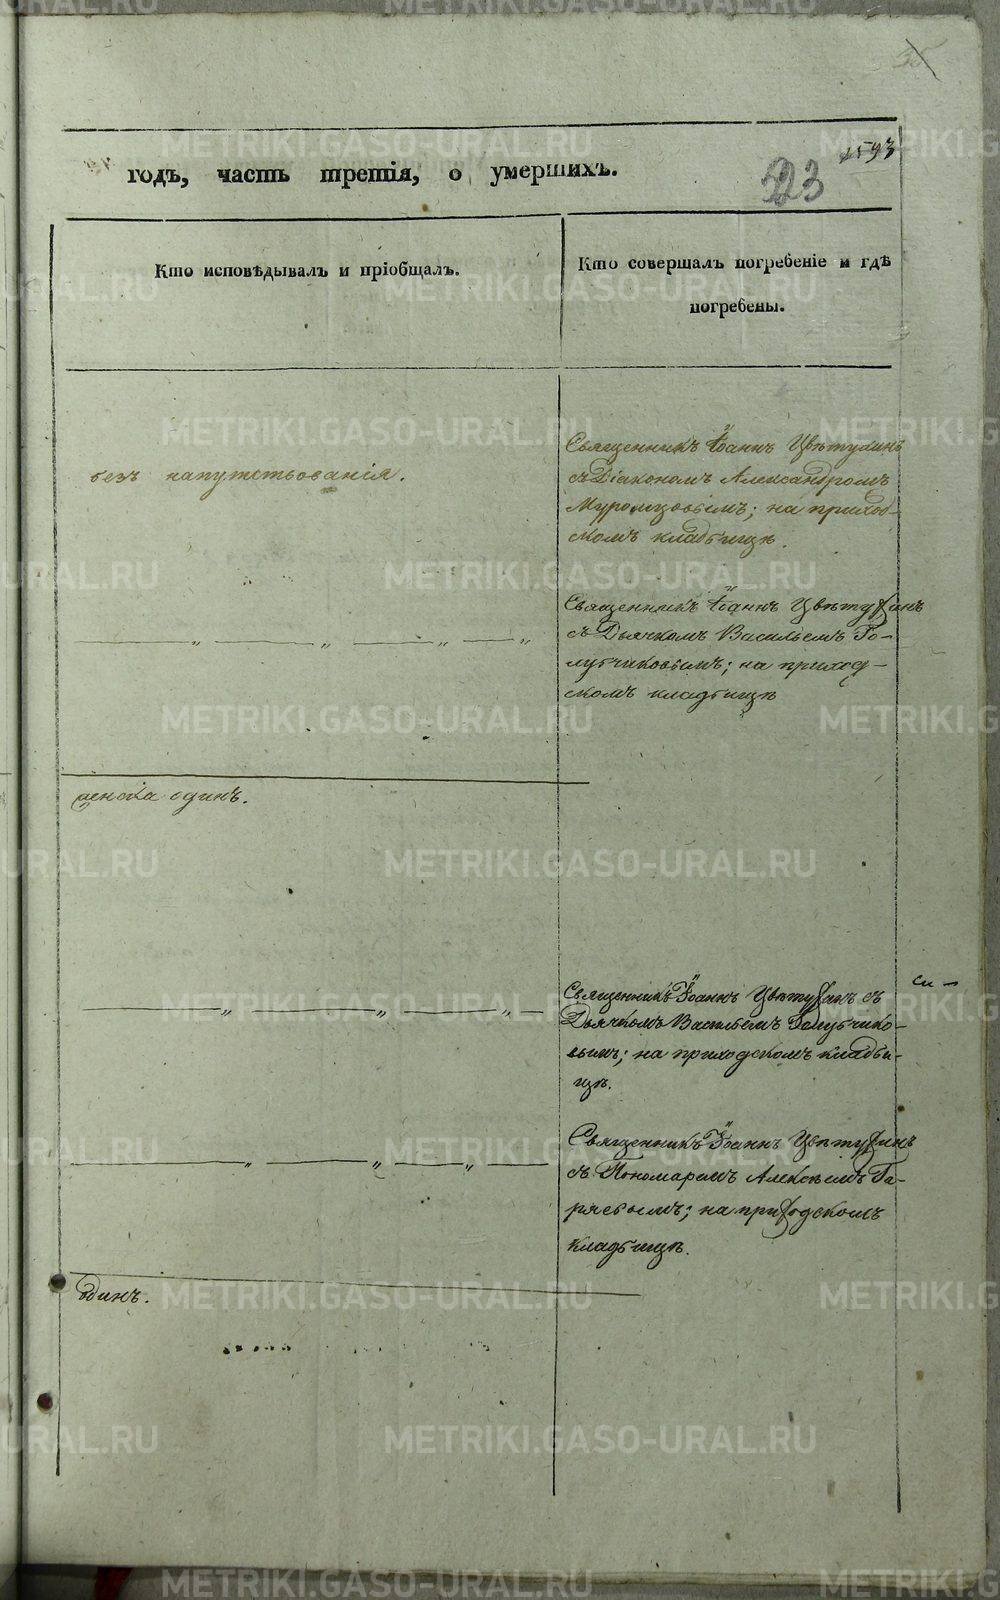 35
1593
523
годъ, часть третія, о умершихъ.
Кто исповѣдывалъ и пріобщалъ.
Кто совершалъ погребеніе и гдѣ
погребены.
безъ напутствованія.
Священникъ Іоаннъ Цвѣтухинъ
съ Діакономъ Александромъ
Муромцовымъ; на приход-
скомъ кладбищѣ.
Священникъ Іоаннъ Цвѣтухинъ
съ Дьячкомъ Васильемъ Го-
лубчиковымъ; на приход-
скомъ кладбищѣ
женска одинъ.
Священникъ Іоаннъ Цвѣтухинъ съ
Дьячкомъ Васильемъ Голубчико-
вымъ; на приходскомъ кладби-
щѣ.
Священникъ Іоаннъ Цвѣтухинъ
съ Пономаремъ Алексѣемъ Га-
ряевымъ; на приходскомъ
кладбищѣ.
одинъ.
METRIKI.GASO-URAL.RU